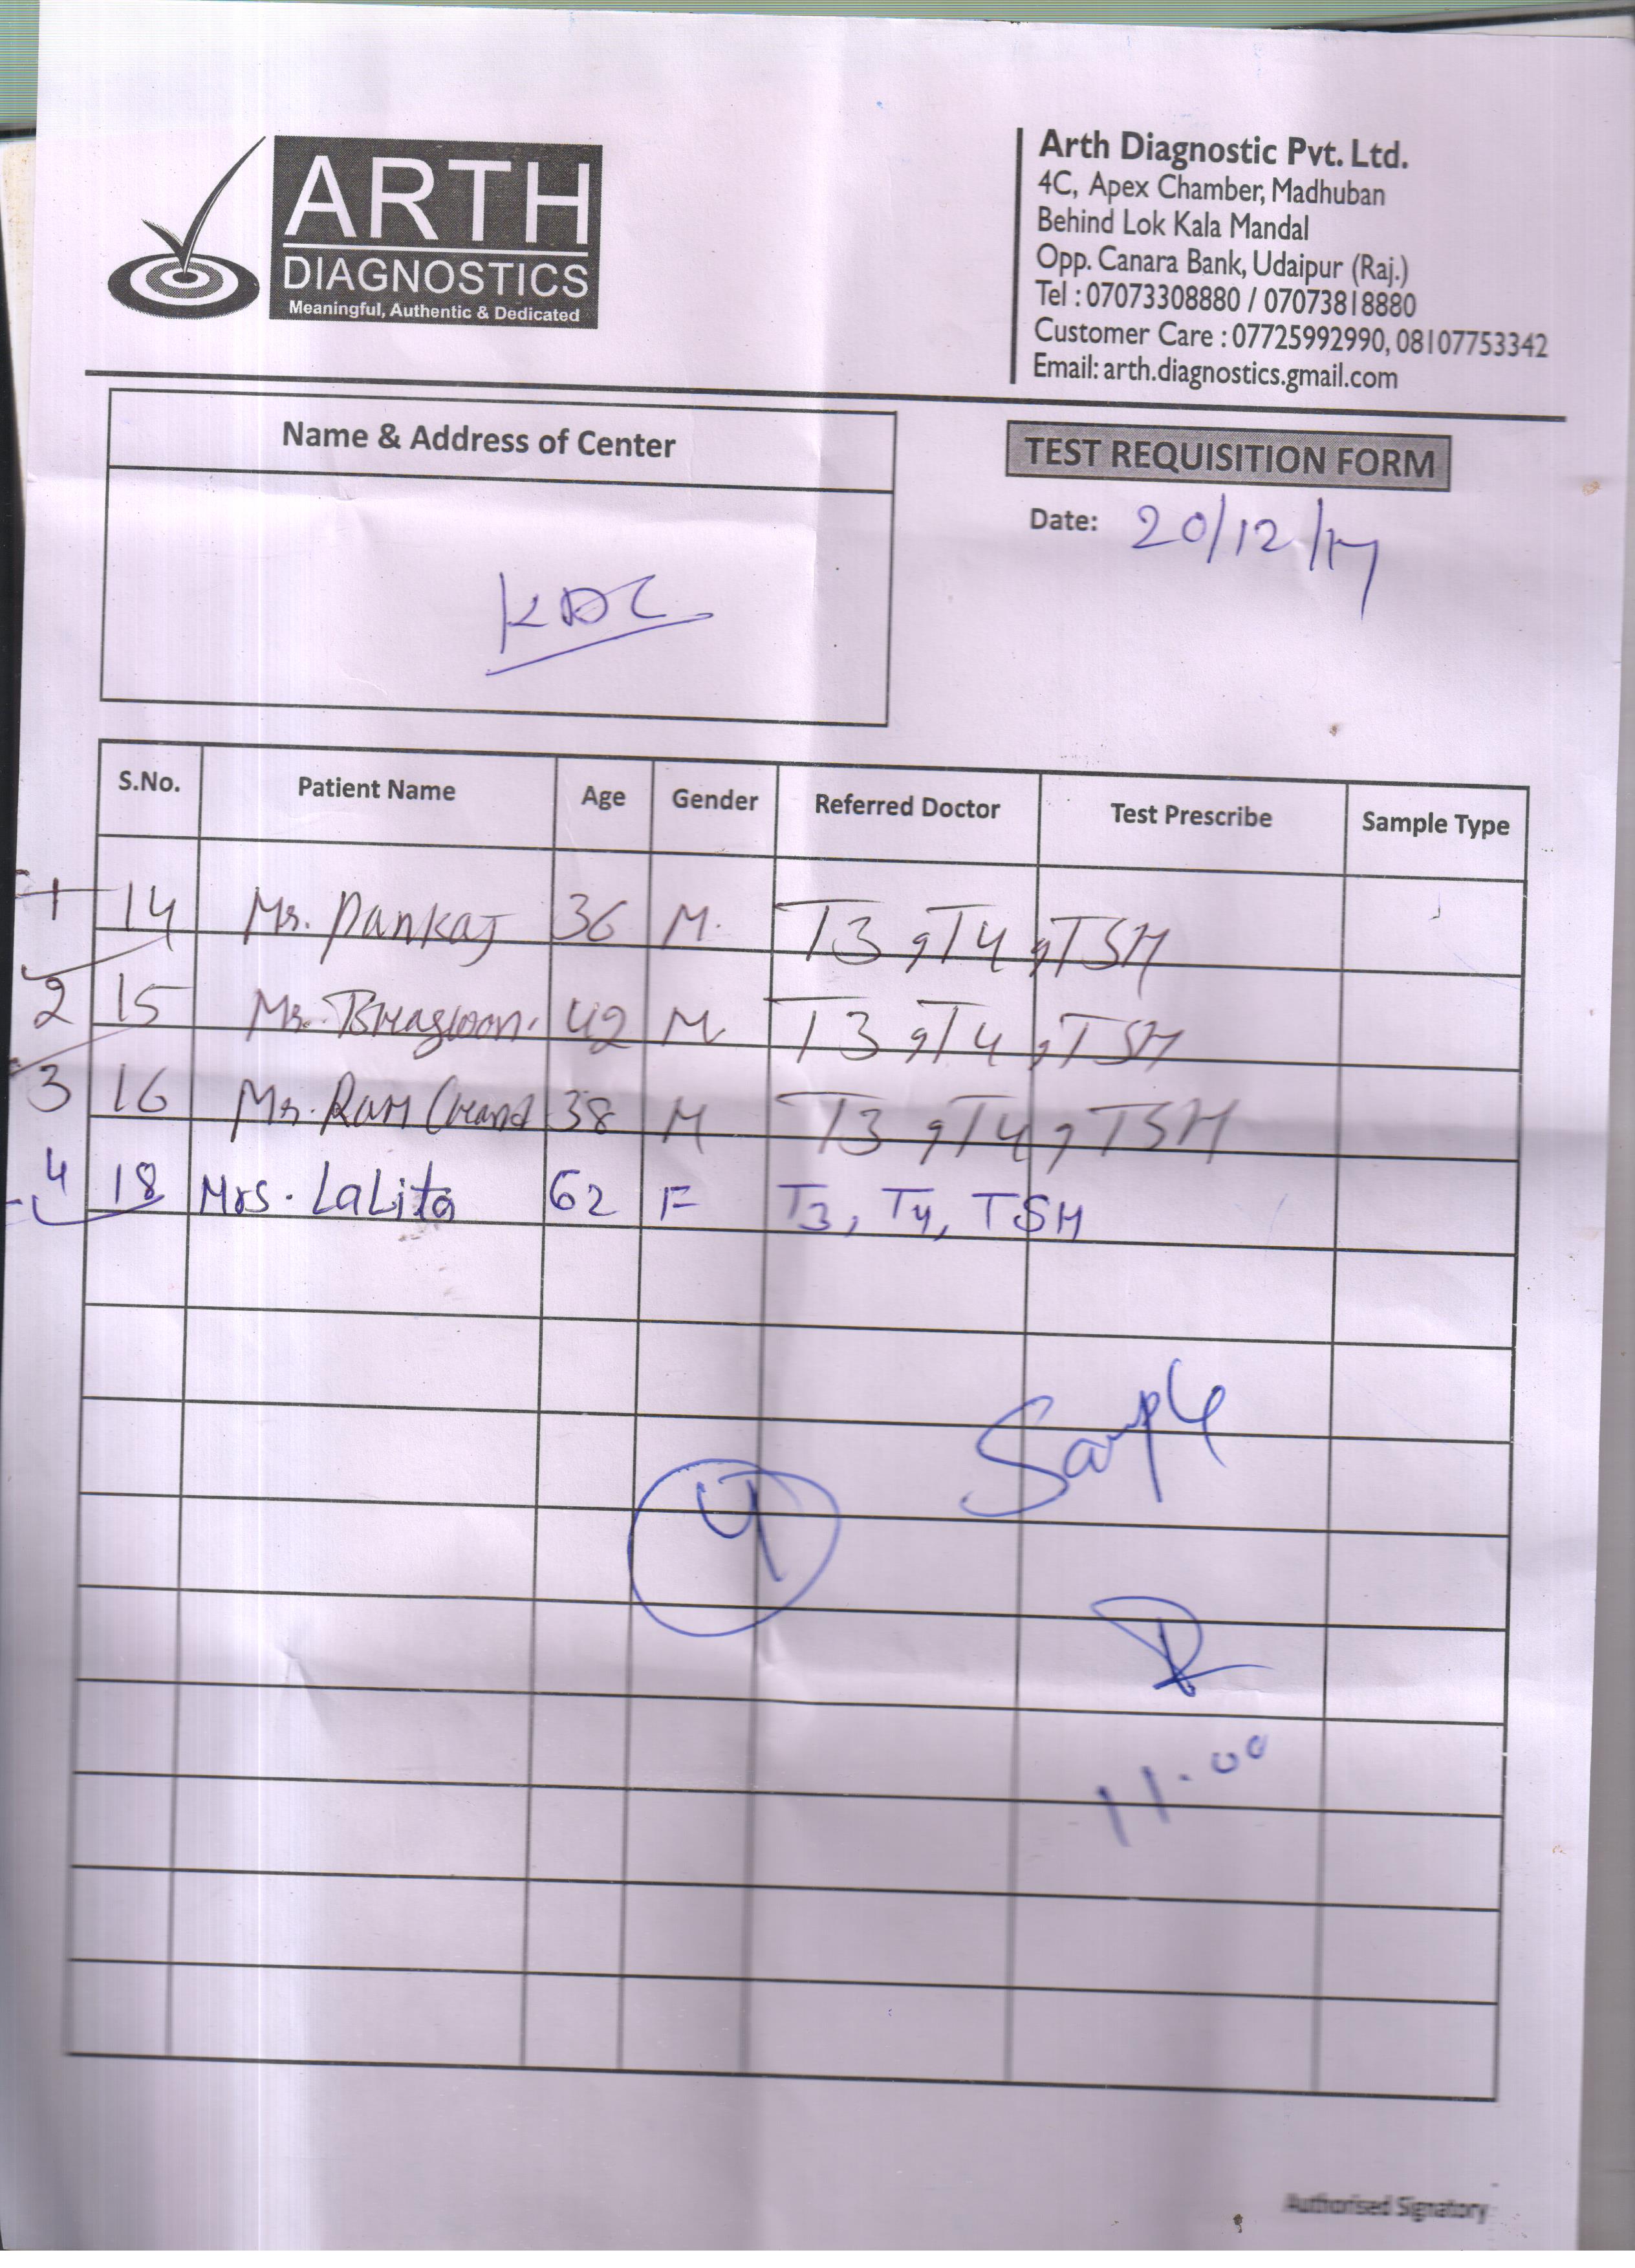 ARTH
DIAGNOSTICS
Meaningful, Authentic & Dedicated
Arth Diagnostic Pvt. Ltd.
4C, Apex Chamber, Madhuban
Behind Lok Kala Mandal
Opp. Canara Bank, Udaipur (Raj.)
Tel : 07073308880 / 07073818880
Customer Care : 07725992990, 08107753342
Email: arth.diagnostics.gmail.com
Name & Address of Center
KDC
TEST REQUISITION FORM
Date: 20/12/17
S.No. Patient Name Age Gender Referred Doctor Test Prescribe Sample Type
1 14 Mr. Pankaj 36 M. T3, T4, TSH
2 15 Mr. 42 M T3, T4, TSH
3 16 Mr. Ram Chand 38 M T3, T4, TSH
4 18 Mrs. Lalita 62 F T3, T4, TSH
4 Sample
11.00
Authorised Signatory